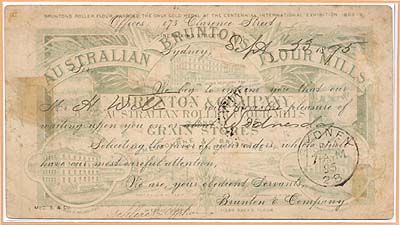 BRUNTONS ROLLER FLOUR AWARDED THE ONLY GOLD MEDAL AT THE CENTENNIAL INTERNATIONAL EXHIBITION 1888-9
Offices: 873 Clarence Street
BRUNTON'S
Sydney, Sept 23 1895
AUSTRALIAN FLOUR MILLS
Sir,
We beg to inform you that our
Mr. H.
will have the pleasure of
BRUNTON & COMPANY
waiting upon you
AUSTRALIAN ROLLER FLOUR MILLS
about Wednesday
GRAIN STORES
Soliciting the favor of your orders, which shall
have our most careful attention,
SYDNEY
7 A.M
95
26
We are, your obedient Servants,
Brunton & Company